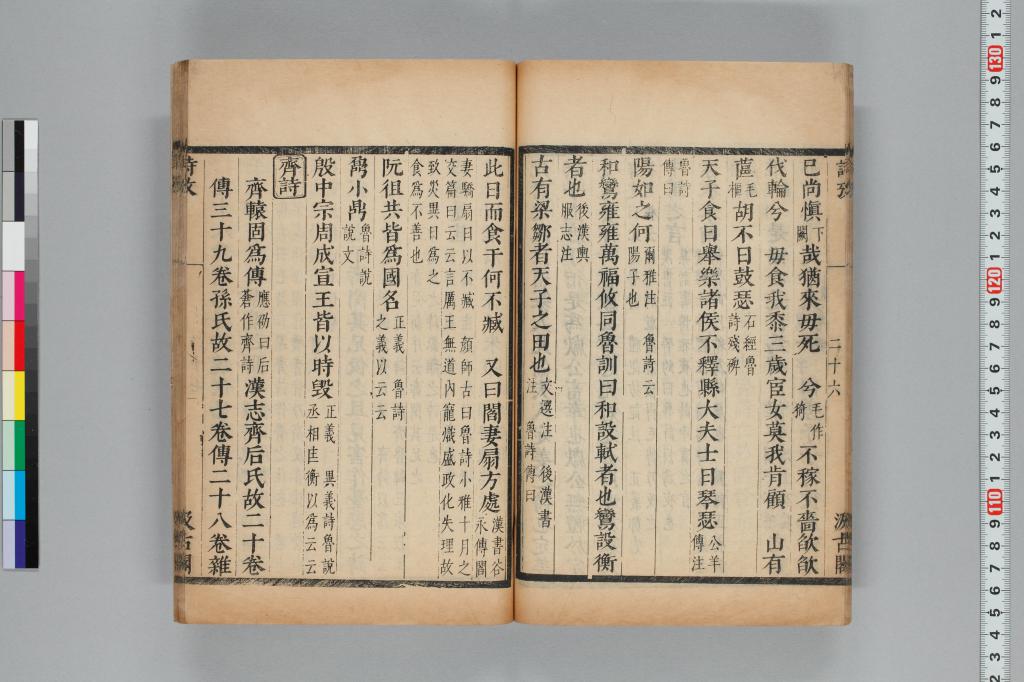 已尚愼下闕哉猶來毋死　兮毛作猗　不稼不嗇欿欿
代輪兮　毋食我黍三歲宦女莫我肯顧　山有
蓲毛樞胡不日鼓瑟石經魯詩殘碑
天子食日舉樂諸侯不釋縣大夫士日琴瑟公羊傳注
魯詩傳曰
陽如之何爾雅注　魯詩云陽子也
和鸞雍雍萬福攸同魯訓曰和設軾者也鸞設衡
者也後漢輿服志注
古有梁鄒者天子之田也文選注　後漢書注　魯詩傳曰
此日而食于何不臧　又曰閻妻扇方處漢書谷永傳閻
妻驕扇日以不臧　顔師古曰魯詩小雅十月之
交篇曰云云言厲王無道內寵熾盛政化失理故
致災異日爲之
食爲不善也
阮徂共皆爲國名正義　魯詩之義以云云
鼐小鼎魯詩說說文
殷中宗周成宣王皆以時毀正義　異義詩魯說丞相匡衡以爲云云
齊詩
齊轅固爲傳應劭曰后蒼作齊詩漢志齊后氏故二十卷
傳三十九卷孫氏故二十七卷傳二十八卷雜
二十六
130
120
110